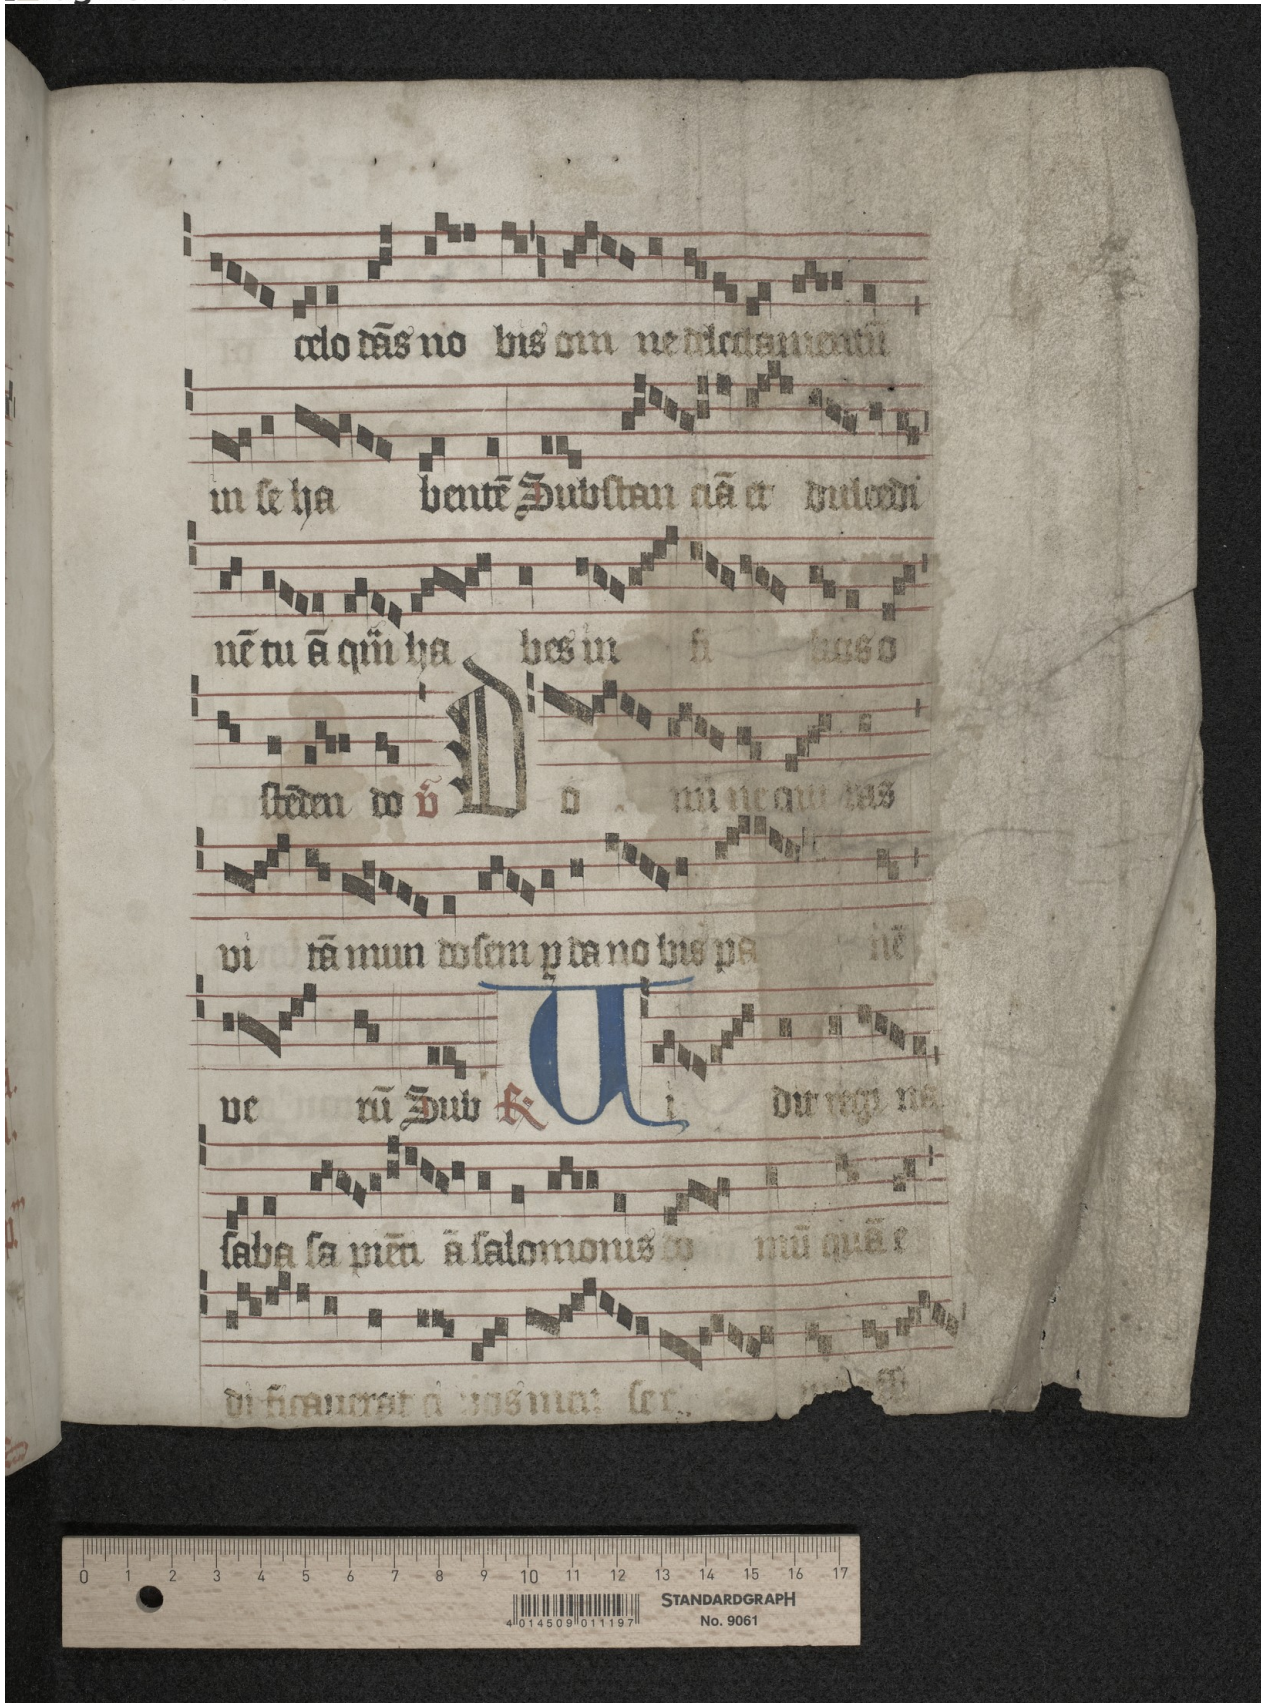 celo dās no bis om ne delectamentū
in se ha bentē Substan ciā et dulcedi
nē tu ā quā ha bes in fi lios o
stēden do v̄ D o mi ne qui das
vi tā mun do sem ꝑ da no bis pa nē
ve rū Sub R̶ U i dit regi na
saba sa piēti ā salomonis do mū quā e
di ficauerat
0 1 2 3 4 5 6 7 8 9 10 11 12 13 14 15 16 17
4 014509 011197 STANDARDGRAPH
No. 9061